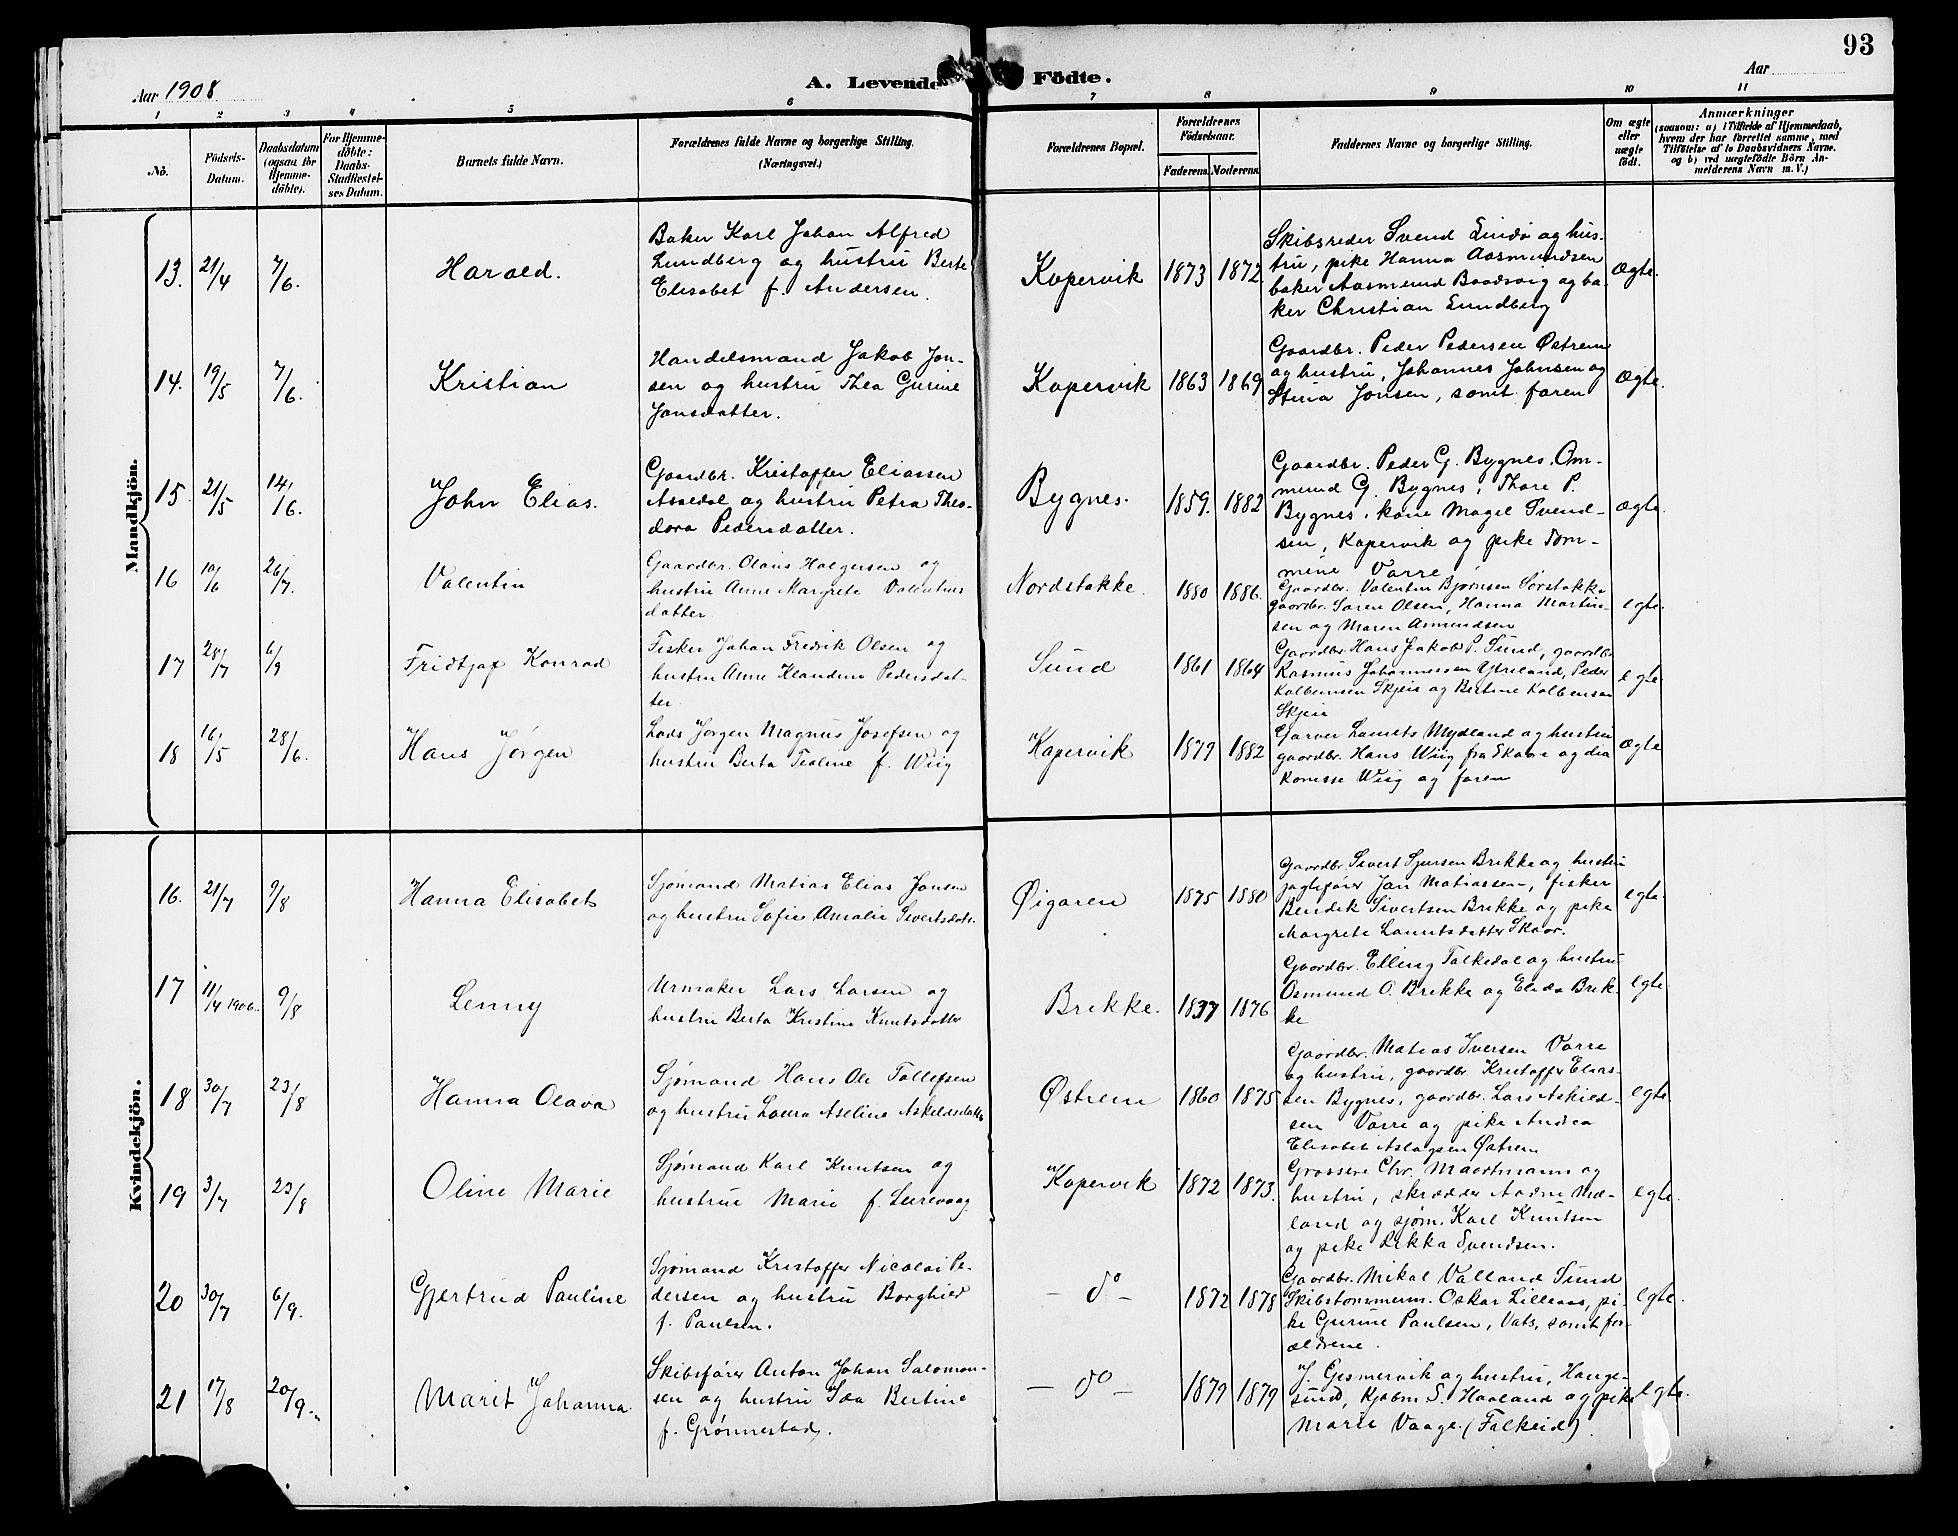 93
Aar 1908
A. Levende Födte.
Aar
1 2 3 4 5 6 7 8 9 10 11
No.
Födsels-
Datum.
Daabsdatum
(ogsaa for
Hjemme-
döbte).
For Hjemme-
döbte:
Daabs-
Stadfæstel-
ses Datum.
Barnets fulde Navn.
Forældrenes fulde Navne og borgerlige Stilling.
(Næringsvei.)
Forældrenes Bopæl.
Forældrenes
Födselsaar.
Faderens. Moderens.
Faddernes Navne og borgerlige Stilling.
Om ægte
eller
uægte
født.
Anmærkninger
(saasom: a) i Tilfælde af Hjemmedaab,
hvem der har forrettet samme, med
Tilföielse af to Daabsvidners Navne.
og b) ved uægtefödte Börn An-
melderens Navn m. V.)
Mandkjön.
13. 21/4 7/6. Harald.
Baker Karl Johan Alfred
Lundberg og hustru Berte
Elisabet f. Andersen.
Kopervik 1873 1872.
Skibsreder Svend Lindö og hus-
tru, pike Hanna Aasmundsen
baker Aasmund Baadsvig og ba-
ker Christian Lundberg
Ægte.
14. 19/5 7/6. Kristian
Handelsmand Jakob Jon-
sen og hustru Thea Gurine
Jonsdatter.
Kopervik 1863 1869
Gaardbr. Peder Pedersen Østrem
og hustru, Johannes Johnsen og
Stina Jonsen, samt faren
Ægte.
15. 21/5 14/6. John Elias.
Gaardbr. Kristoffer Eliassen
Assedal og hustru Petra Theo-
dora Pedersdatter.
Bygnes. 1859. 1882
Gaardbr. Peder G. Bygnes. Om-
mund G. Bygnes, Thore P.
Bygnes, kone Magel Svend-
sen, Kopervik og pike Tom-
mine Vorre
Ægte.
16 10/6 26/7. Valentin
Gaardbr. Olaus Holgersen og
hustru Anne Margrete Valentins
datter
Nordstokke. 1880 1886.
Gaardbr. Valentin Bjørnsen Sørstokke
gaardbr. Søren Olsen, Hanna Martin-
sen og Maren Asmundsen
egte.
17 28/7 6/9 Fridtjof Konrad
Fisker Johan Fredrik Olsen og
hustru Anne Klandine Pedersdat-
ter
Sund 1861 1864
Gaardbr. Hans Jakob P. Sund, gaardbr
Rasmus Johannessen Ytreland, Peder
Kolbeinsen Skjeie og Bertine Kolbensen
Skjeie
egte
18 16/5 28/6. Hans Jörgen
Lods Jørgen Magnus Josefsen og
hustru Berta Tealine f. Wiig
Kopervik 1879 1882
Garver Laurits Mydland og hustru
gaardbr. Hans Wiig fra Skaare og dia
konisse Wiig og faren
Ægte
Kvindekjön.
16. 21/7 9/8 Hanna Elisabet
Sjømand Matias Elias Jonsen
og hustru Sofie Amalie Sivertsdatt.
Øigaren 1875 1880
Gaardbr Sivert Sjursen Brekke og hustru
jagtefører Jan Matiassen, fisker
Bendik Sivertsen Brekke og pike
Margrete Lauritsdatter Skaar.
egte.
17 11/4 1906. 9/8 Lenny
Urmaker Lars Larsen og
hustru Berta Kristine Knutsdatter
Brekke. 1877 1876
Gaardbr. Elling Falkedal og hustru
Osmund O. Brekke og Elida Brek-
ke
egte.
18 30/7 23/8 Hanna Olava
Sjømand Hans Ole Tollefsen
og hustru Laura Aseline Askildsdatt.
Østrem 1860 1875
Gaardbr. Matias Iversen Vorre
og hustru, gaardbr. Kristoffer Elias-
sen Bygnes, gaardbr. Lars Askild-
sen Vorre og pike Andrea
Elisabet Aslagsen Østrem
egte
19 3/7 23/8 Oline Marie
Sjømand Karl Knutsen og
hustrue Marie f. Leirvaag.
Kopervik 1872 1873.
Grossere Chr. Maartmann og
hustru, skrædder Aadne Mæ-
land og sjøm. Karl Knutsen
og pike Rikka Svendsen.
egte.
20 30/7 6/9. Gjertrud Pauline
Sjømand Kristoffer Nicolai Pe-
dersen og hustru Borghild
f. Paulsen.
- do - 1872 1878
Gaardbr. Mikal Valland Sund
Skibstømmerm. Oskar Lilleaas, pi-
ke Gurine Paulsen, Vats, samt for-
ældrene.
egte.
21 17/8 20/9. Marit Johanna.
Skibsfører Anton Johan Salomon-
sen og hustru Ida Bertine
f. Grønnestad.
- do - 1879 1879
J. Gismervik og hustru, Hauge-
sund, Kjøbm S. Haaland og pike
Marie Vaage. (Falkeid).
egte.